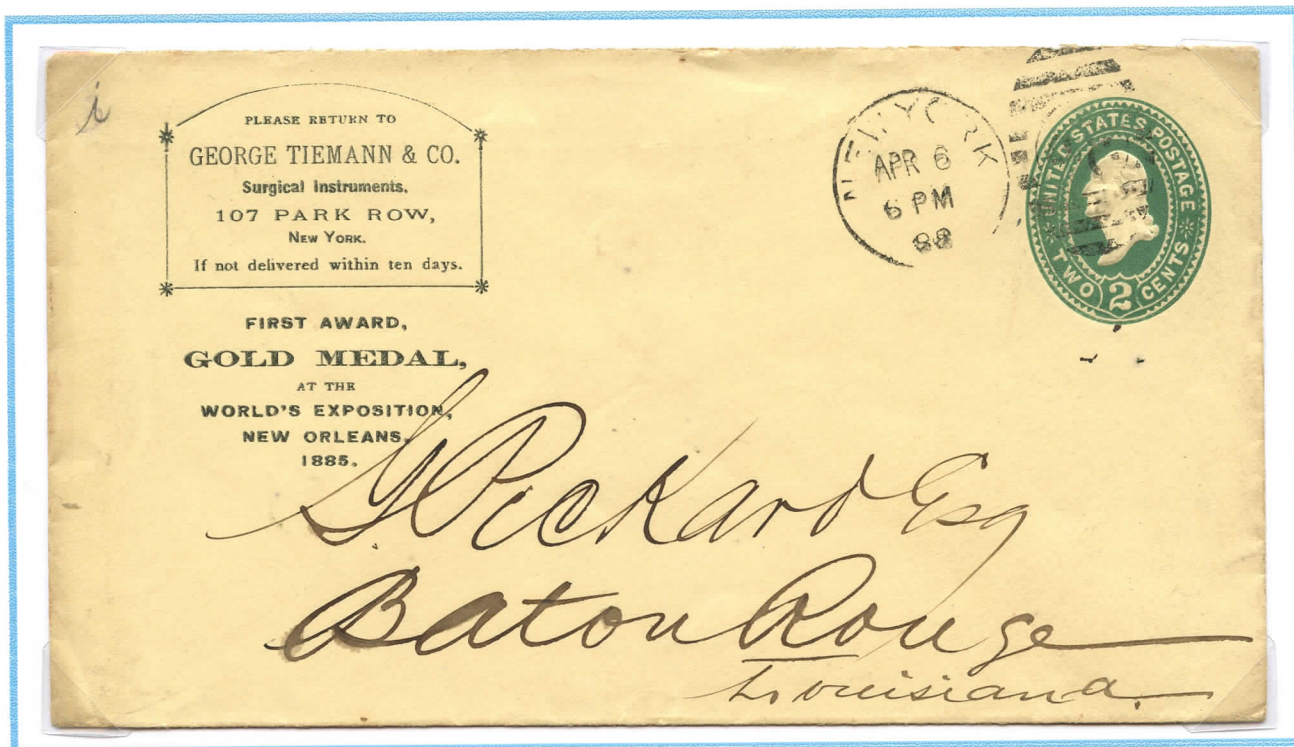 i
PLEASE RETURN TO
GEORGE TIEMANN & CO.
Surgical Instruments,
107 PARK ROW,
NEW YORK.
If not delivered within ten days.
FIRST AWARD,
GOLD MEDAL,
AT THE
WORLD'S EXPOSITION,
NEW ORLEANS,
1885.
NEW YORK
APR 6
6 PM
88
UNITED STATES POSTAGE
TWO 2 CENTS
G Pickard Esq
Baton Rouge
Louisiana